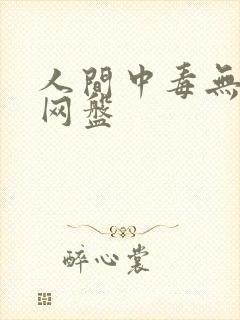 人間中毒無
网盤
醉心裳